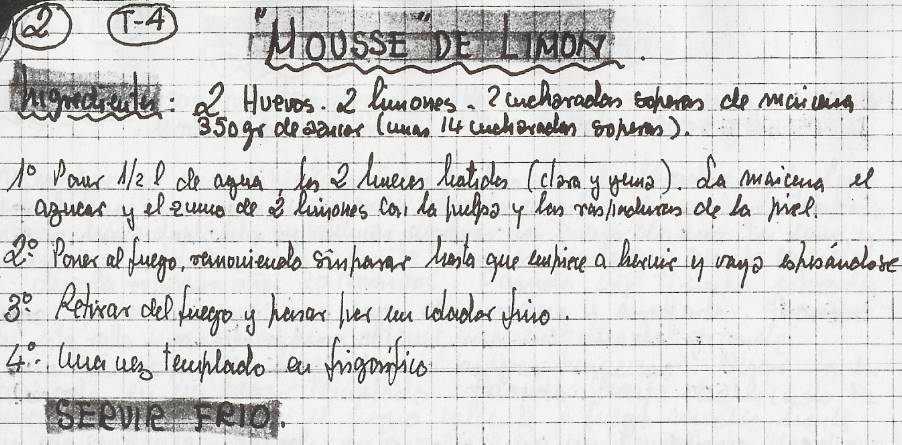 2 T-4 "MOUSSE" DE LIMON.
Ingredientes: 2 Huevos. 2 limones. 2 cucharadas soperas de maicena
350 gr de azucar (unas 14 cucharadas soperas).
1º Poner 1/2 l de agua, los 2 huevos batidos (clara y yema). La maicena el
azucar y el zumo de 2 limones con la pulpa y las raspaduras de la piel.
2º. Poner al fuego, removiendo sin parar hasta que empiece a hervir y vaya espesándose
3º Retirar del fuego y pasar por un colador fino.
4º. Una vez templado en frigorífico
SERVIR FRIO.